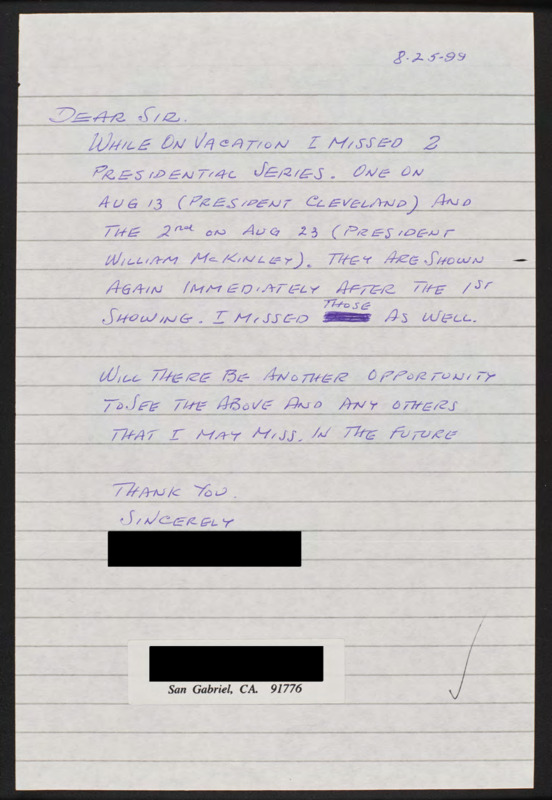 8-25-99
DEAR SIR.
WHILE ON VACATION I MISSED 2
PRESIDENTIAL SERIES. ONE ON
AUG 13 (PRESIDENT CLEVELAND) AND
THE 2nd ON AUG 23 (PRESIDENT
WILLIAM McKINLEY). THEY ARE SHOWN
AGAIN IMMEDIATELY AFTER THE 1ST
SHOWING. I MISSED THOSE AS WELL.
WILL THERE BE ANOTHER OPPORTUNITY
TO SEE THE ABOVE AND ANY OTHERS
THAT I MAY MISS. IN THE FUTURE
THANK YOU.
SINCERELY
San Gabriel, CA. 91776